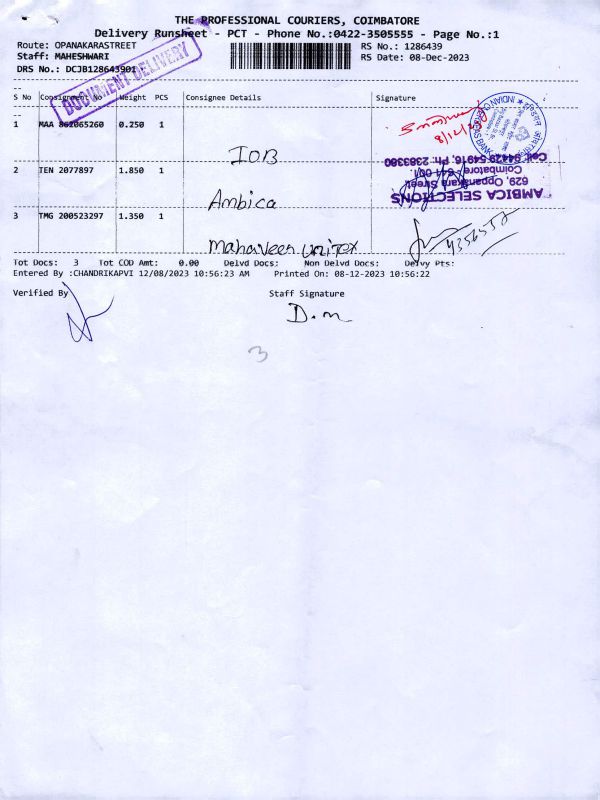 THE PROFESSIONAL COURIERS, COIMBATORE
Delivery Runsheet - PCT - Phone No.:0422-3505555 - Page No.:1
Route: OPANAKARASTREET
RS No.: 1286439
Staff: MAHESHWARI
RS Date: 08-Dec-2023
DRS No.: DCJB128643901
DOCUMENT DELIVERY
S No Consignment No Weight PCS Consignee Details Signature
1 MAA 862065260 0.250 1 IOB
8/12/23
2 TEN 2077897 1.850 1 Ambica
AMBICA SELECTIONS
629, Oppanakara Street,
Coimbatore - 641 001.
Cell: 94429 54916, Ph: 2383380
3 TMG 200523297 1.350 1 Mahaveer Unitex
Tot Docs: 3 Tot COD Amt: 0.00 Delvd Docs: Non Delvd Docs: Delvy Pts:
Entered By :CHANDRIKAPVI 12/08/2023 10:56:23 AM Printed On: 08-12-2023 10:56:22
Verified By
Staff Signature
D.m
3